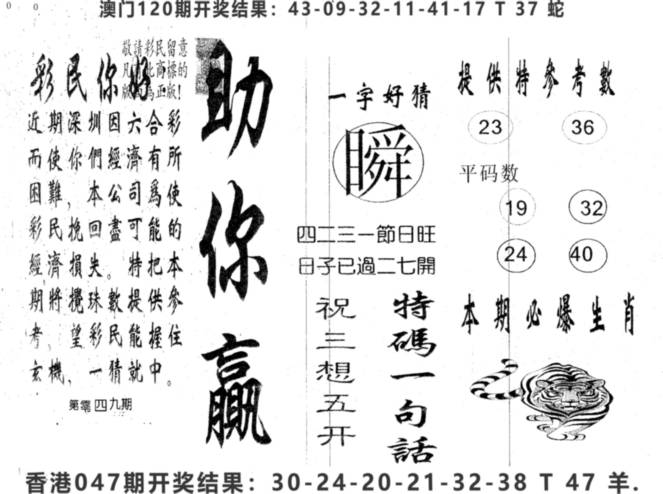 澳门120期开奖结果：43-09-32-11-41-17 T 37 蛇
敬請彩民留意
彩民你好
近期深圳因六合彩
而使你們經濟有所
困難，本公司爲使
彩民挽回盡可能的
經濟損失。特把本
期將攪珠數提供參
考，望彩民能握住
玄機，一猜就中。
第零四九期
助你贏
一字好猜
瞬
四二三一節日旺
日子已過二七開
特碼一句話
祝三想五开
提供特參考數
23 36
平码数
19 32
24 40
本期必爆生肖
香港047期开奖结果：30-24-20-21-32-38 T 47 羊.